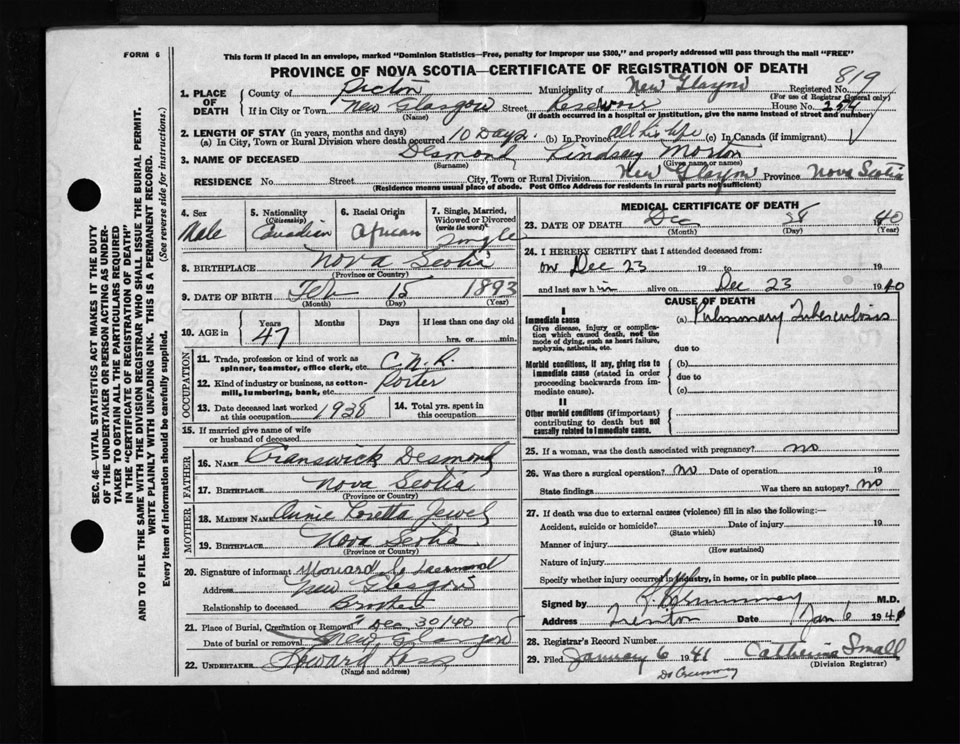 FORM 6
This form if placed in an envelope, marked "Dominion Statistics—Free, penalty for improper use $300," and properly addressed will pass through the mail "FREE"
PROVINCE OF NOVA SCOTIA—CERTIFICATE OF REGISTRATION OF DEATH
819
1. PLACE OF DEATH County of Pictou Municipality of New Glasgow Registered No.
(For use of Registrar General only)
If in City or Town New Glasgow Street Reservoir House No. 224
(Name) (If death occurred in a hospital or institution, give the name instead of street and number)
2. LENGTH OF STAY (in years, months and days)
(a) In City, Town or Rural Division where death occurred 10 Days. (b) In Province All his life (c) In Canada (if immigrant)
3. NAME OF DECEASED Desmond Lindsay Morton
(Given name or names)
RESIDENCE No. Street City, Town or Rural Division New Glasgow Province Nova Scotia
(Residence means usual place of abode. Post Office Address for residents in rural parts not sufficient)
4. Sex Male
5. Nationality (Citizenship) Canadian
6. Racial Origin African
7. Single, Married, Widowed or Divorced (write the word) Single
8. BIRTHPLACE Nova Scotia
(Province or Country)
9. DATE OF BIRTH Feb 15 1893
(Month) (Day) (Year)
10. AGE in Years 47 Months Days If less than one day old hrs. or min.
OCCUPATION
11. Trade, profession or kind of work as spinner, teamster, office clerk, etc. C.N.R.
12. Kind of industry or business, as cotton-mill, lumbering, bank, etc. Porter
13. Date deceased last worked at this occupation 1938
14. Total yrs. spent in this occupation
15. If married give name of wife or husband of deceased
FATHER
16. NAME Cranswick Desmond
17. BIRTHPLACE Nova Scotia
(Province or Country)
MOTHER
18. MAIDEN NAME Annie Loretta Jewel
19. BIRTHPLACE Nova Scotia
(Province or Country)
20. Signature of informant
Address New Glasgow
Relationship to deceased Brother
21. Place of Burial, Cremation or Removal Dec 30/40
Date of burial or removal New Glasgow
22. UNDERTAKER Howard Ross
(Name and address)
MEDICAL CERTIFICATE OF DEATH
23. DATE OF DEATH Dec 28 1940
(Month) (Day) (Year)
24. I HEREBY CERTIFY that I attended deceased from:
on Dec 23 19 to 19
and last saw him alive on Dec 23 1940
CAUSE OF DEATH
I
Immediate cause (a) Pulmonary Tuberculosis
Give disease, injury or complication which caused death, not the mode of dying, such as heart failure, asphyxia, asthenia, etc.
due to
Morbid conditions, if any, giving rise to immediate cause (stated in order proceeding backwards from immediate cause).
(b)
due to
(c)
II
Other morbid conditions (if important) contributing to death but not causally related to immediate cause.
25. If a woman, was the death associated with pregnancy? no
26. Was there a surgical operation? No Date of operation 19
State findings Was there an autopsy? no
27. If death was due to external causes (violence) fill in also the following:—
Accident, suicide or homicide? Date of injury 19
(State which)
Manner of injury
(How sustained)
Nature of injury
Specify whether injury occurred in industry, in home, or in public place
Signed by M.D.
Address Trenton Date Jan 6 1941
28. Registrar's Record Number
29. Filed January 6 1941 Catherine Small
(Division Registrar)
SEC. 46—VITAL STATISTICS ACT MAKES IT THE DUTY
OF THE UNDERTAKER OR PERSON ACTING AS UNDER-
TAKER TO OBTAIN ALL THE PARTICULARS REQUIRED
IN THE "CERTIFICATE OF REGISTRATION OF DEATH"
AND TO FILE THE SAME WITH THE DIVISION REGISTRAR WHO SHALL ISSUE THE BURIAL PERMIT.
WRITE PLAINLY WITH UNFADING INK. THIS IS A PERMANENT RECORD.
Every item of information should be carefully supplied. (See reverse side for instructions.)